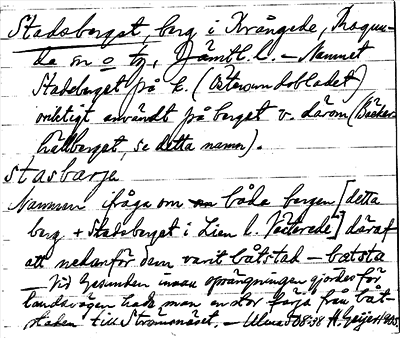 Stadsberget, berg i Krångede, Ragun-
da sn o tg, Jämtl. l. – Namnet
Stadsberget på k. (Östersundsbladet)
oriktigt använдt på berget v. därom (Böcker-
hällberget, se detta namn).
stasbärja
Namnen ifråga om båda bergen [detta
berg + Stadsberget i Lien l. Västerede] däraf
att nedanför dem varit båtstad – båtsta
– Vid Gesunden innan sprängningen gjordes för
landsvägen hade man en stor färja från båt-
staden till Strömnäset. – H. Geijer 1935.